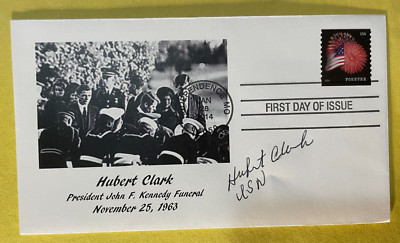 USA
FOREVER
INDEPENDENCE, MO
JAN
28
2014
FIRST DAY OF ISSUE
Hubert Clark
USN
Hubert Clark
President John F. Kennedy Funeral
November 25, 1963